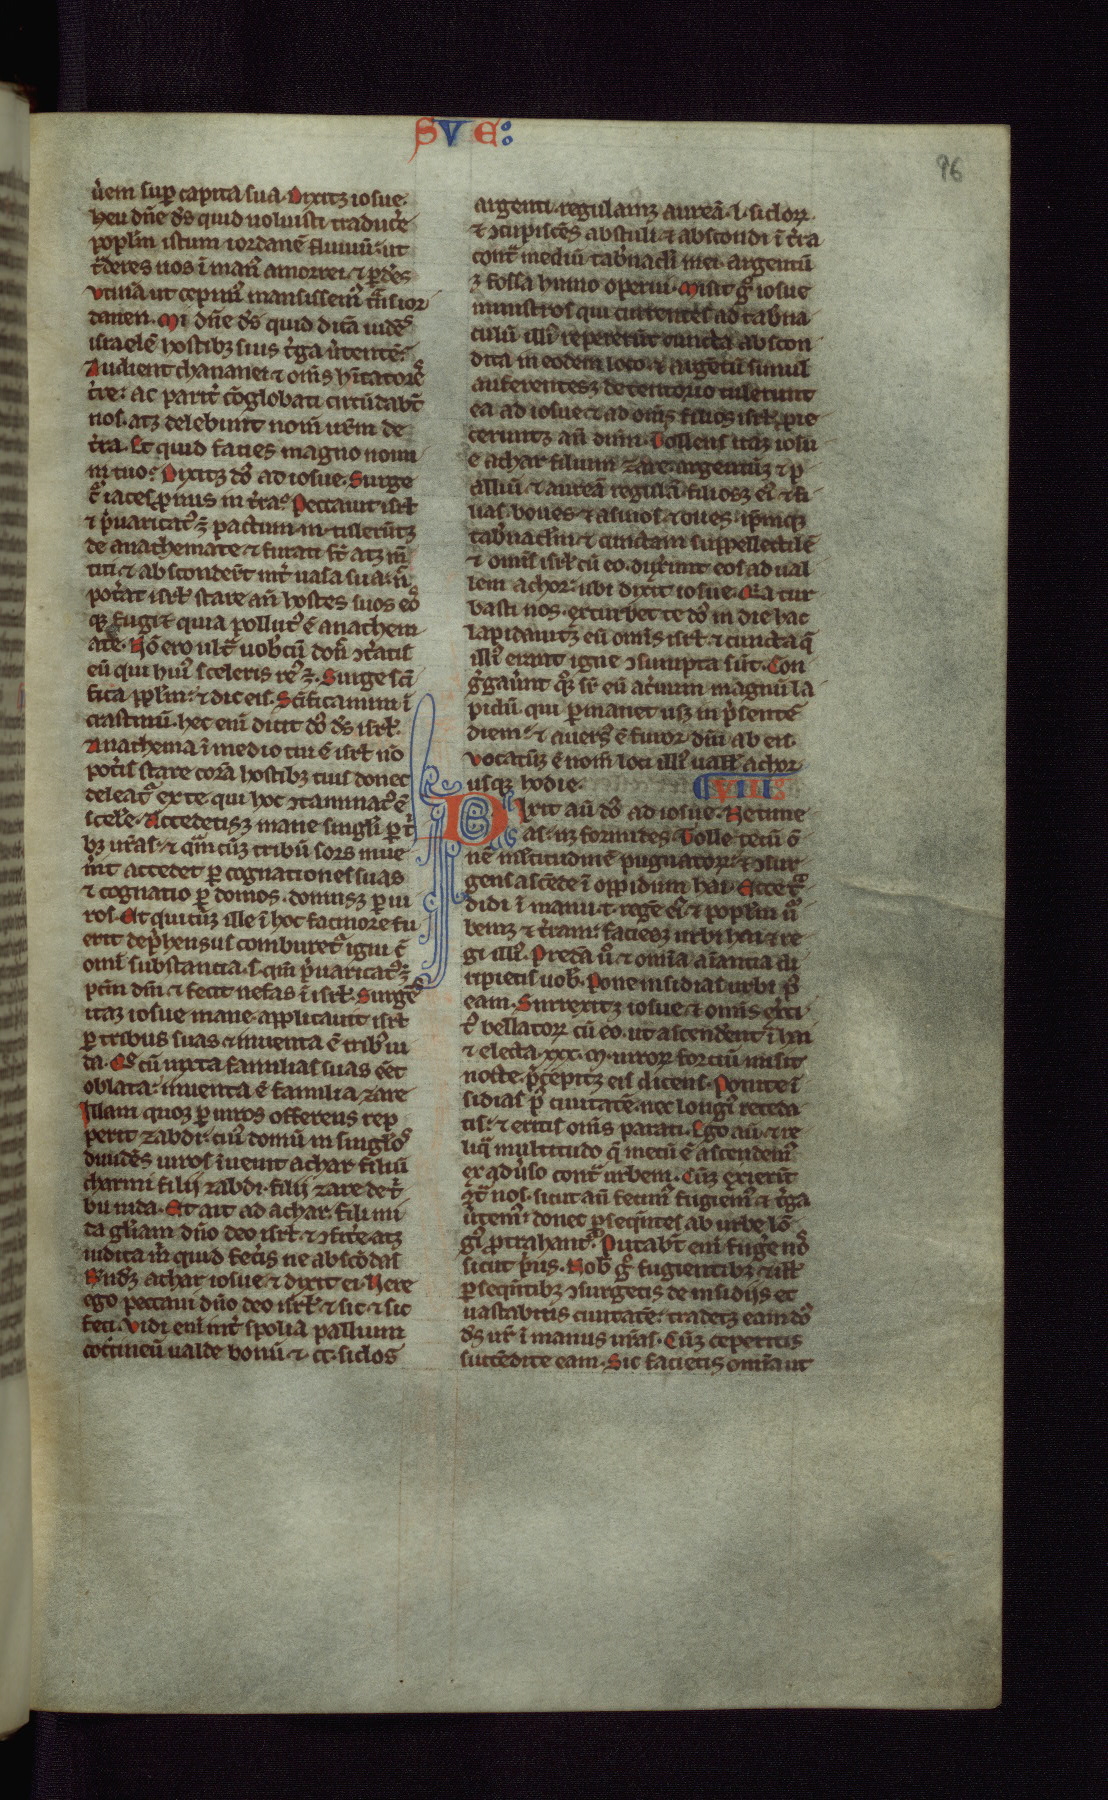 SVE:
96
u̾em sup̱ capita sua. Dixitqꝫ iosue.
heu dn̄e dꝰs quid uoluisti traduce̾
popl̄m istum iordanē fluuiū: ut
t̾deres nos ī manꝰ amorrei. ⁊ ꝑde̾s
Vtinā ut cepimꝰ mansissemꝰ t̾ns ior
danen. Mi dn̄e dꝰs quid dicā uidēs
israelē hostibꝫ suis t̾ga u̾tentē?
Audient chananei ⁊ om̄s h̾itatorꝭ
tr̾e: ac parit̾ cōglobati circūdabt̄
nos. atqꝫ delebunt nom̄ nr̄m de
tr̾a. Et quid facies magno nomi
ni tuo? Dixitqꝫ dn̄s ad iosue. Surge
c̾ iaces ꝓnus in tr̾a? Peccauit isrł
⁊ p̾uaricatꝰ ꝫ pactum m̄. tulerūtqꝫ
de anathemate ⁊ furati st̄ atqꝫ m̄
titi. ⁊ absconder̄t int̾ uasa sua. n̄
pot̾at isrł stare an̄ hostes suos eōs
qꝫ fugiet quia pollutꝰ ē anathem
ate. Nō ero ult̾ uob̾cū don̄ ꝯt̾atis
eū qui huiꝰ sceleris reꝰ ꝫ. Surge sc̄i
fica ppl̄m: ⁊ dic eis. Sc̄ificamini ī
crastinū. hec eni dicit dn̄s dꝰs isrł.
Anathema ī medio tui ē isrł. nō
pot̾is stare corā hostibꝫ tuis donec
deleat̾ ex te qui hoc ꝯtaminatꝰ ē
scele̾. Accedetisqꝫ mane singl̾i ꝑ t̾
bꝫ ur̄as: ⁊ qm̄cūqꝫ tribū sors inue
n̾it accedet ꝑ cognationes suas
⁊ cognatio ꝑ domos. domusqꝫ ꝑ ui
ros. Et quicūqꝫ ille ī hoc facinore fu
erit dep̾hensus comburet̾ igni cū
om̄i substantia. s. qm̄ p̾uaricatꝰ ꝫ
pc̄m dn̄i ⁊ fecit nefas ī isrł. Surgēs
itaqꝫ iosue mane. applicauit isrł
ꝑ tribus suas ⁊ inuenta ē tribꝰ iu
da. Qꝰ cū iuxta familias suas eēt
oblata: inuenta ē familia zare
Illam quoqꝫ ꝑ uiros offerens rep
perit zabdi. cuiꝰ domū in singl̾os
diuidēs uiros īuenit achar filiū
charmi filij zabdi. filij zare de t̾
bu iuda. Et ait ad achar. fili mi
da gl̄iam dn̄o deo isrł ⁊ ꝯfite̾. atqꝫ
indica m̄ quid fec̾is ne abscōdas
R̄nditqꝫ achar iosue ⁊ dixit ei. Vere
ego peccaui dn̄o deo isrł. ⁊ sic ⁊ sic
feci. Vidi eni int̾ spolia pallium
coccineū ualde bonū ⁊ cc. siclos
argenti. regulamqꝫ aureā. l. siclorꝝ.
⁊ ꝯcupiscēs abstuli. ⁊ abscondi ī tr̾a
cont̾ mediū tab̾nacl̄i mei. argentū
ꝫ fossa humo operui. Misit g̾ iosue
ministros qui currentes ad tab̾na
culū illiꝰ reperer̄ūt cuncta abscon
dita in eodem loco. ⁊ argētū simul
auferentesqꝫ de tentorio tulerunt
ea ad iosue ⁊ ad om̄s filios isrł. ꝓie
ceruntqꝫ an̄ dn̄m. Tollens itaqꝫ iosu
e achar filium zare. argentūqꝫ ⁊ p
alliū. ⁊ aureā regulā. filiosqꝫ eiꝰ ⁊ fi
lias. boues ⁊ asinos. ⁊ oues. ip̄mqꝫ
tab̾nacl̄m ⁊ cunctam suppellectilē
⁊ om̄is isrł cū eo. dux̾unt eos ad ual
lem achor. ubi dixit iosue. Quia tur
basti nos. exturbet te dn̄s in die hac
Lapidauitqꝫ eū omīs isrł. ⁊ cuncta q̄
illiꝰ erant igne ꝯsumpta sūt. Con
g̾gau̾unt qꝫ sr̄ eū ac̾uum magnū la
pidū. qui ꝑmanet usqꝫ in p̾sentē
diem. ⁊ auersꝰ ē furor dn̄i ab eis.
Vocatusqꝫ ē nom̄ loci illiꝰ uallꝭ achor
usqꝫ hodie. C VIII
Dixit au̾ dn̄s ad iosue. Ne time
as. nꝫ formides. Tolle tecū o
nē m̄ltitudinē pugnatorꝝ. ⁊ ꝯsur
gens ascēde ī oppidum hai. Ecce t̾
didi ī manu t. regē eiꝰ ⁊ popl̄m u̾
bemqꝫ ⁊ tr̾am. faciesqꝫ urbi hai ⁊ re
gi illiꝰ. Predā u̾ ⁊ om̄ia aīantia di
ripietis uob̾. Pone insidias urbi pꝰ
eam. Surrexitqꝫ iosue ⁊ om̄is ex̾ci
tꝰ bellatorꝝ cū eo. ut ascenderent ī hai
⁊ electa. xxx. m. uirorꝝ fortiū misit
nocte. p̾cepitqꝫ eis dicens. Ponite ī
sidias pꝰ ciuitatē. nec longiꝰ receda
tis: ⁊ eritis om̄s parati. Ego au̾ ⁊ re
liq̾ multitudo q̄ mecū ē ascendemꝰ
ex adu̾so cont̾ urbem. Cūqꝫ exierit
ꝯt̾ nos. sicut an̄ fecimꝰ fugiemꝰ ⁊ t̾ga
u̾temꝰ donec ꝑseq̾ntes ab urbe lō
giꝰ ꝓtrahant̾. Putabt̄ eni fuge̾ nōs
sicut p̾us. Nob̾ g̾ fugientibꝫ ⁊ illꝭ
ꝑseq̾ntibꝫ ꝯsurgetis de insidijs et
uastabitis ciuitatē: tradetqꝫ eam dn̄s
dꝰs ur̄ ī manus ur̄as. Cūqꝫ ceperitis
succēdite eam. Sic facietis om̄ia ut